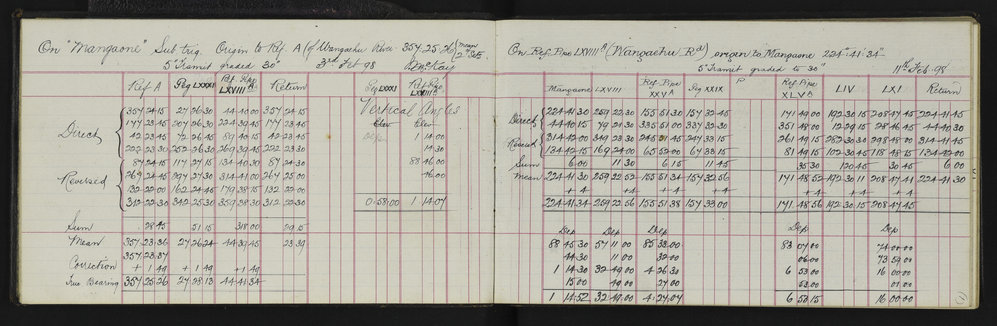 On "Mangaone" Sub trig. Origin to Ref. A (of Wangaehu River 354.25.26) { mean 2nd Sets.
5" Transit graded 30" 3rd Feb 98
Ref A Peg LXXXI Ref. Peg LXVIII A Return Peg LXXXI Ref Peg LXVIII A
Vertical Angles
Direct 357 24 15 27 26 30 44 40 00 357 24 15
177 23 45 207 26 30 224 39 45 177 23 45 Elev Elev
42 23 45 72 26 45 89 40 15 42 23 45 1 14 00
222 23 30 252 26 30 269 39 45 222 23 30 14 30
Reversed 87 24 15 117 27 15 134 40 30 87 24 30 88 46 00
269 24 45 297 27 30 314 41 00 267 25 00 46 00
132 22 00 162 24 45 179 38 15 132 22 00
312 22 30 342 25 30 359 38 30 312 22 30 0:58:00 1 14:07
Sum 28 45 51 15 318 00 29 15
Mean 357 23 36 27 26 24 44 39 45 23 39
357 23 37
Correction + 1 49 + 1 49 + 1 49
True Bearing 357 25 26 27 28 13 44 41 34
On Ref. Pipe LXVIII A (Wangaehu Rd) origin to Mangaone 224°:41':34"
5" Transit graded to 30" 11th Feb. 98
Mangaone LXVIII Ref. Pipe XXV A Peg XXIX P Ref Pipe XLV A LIV LXI Return
Direct 224 41 30 259 22 30 155 51 30 157 32 45 171 49 00 192 30 15 208 47 45 224 41 45
44 40 15 79 21 30 335 51 00 337 32 30 351 48 00 12 29 15 28 46 45 44 40 30
Reversed 314 42 00 349 23 30 245 51 45 247 33 15 261 49 15 282 30 30 298 48 00 314 41 45
134 42 15 169 24 00 65 52 00 67 33 15 81 49 15 102 30 45 118 48 15 134 42 00
Sum 6 00 11 30 6 15 11 45 35 30 120 45 30 45 6 00
Mean 224 41 30 259 22 52 155 51 34 157 32 56 171 48 52 192 30 11 208 47 41 224 41 30
+ 4 + 4 + 4 + 4 + 4 + 4 + 4
224 41 34 259 22 56 155 51 38 157 33 00 171 48 56 192 30 15 208 47 45
Dep Dep Dep Dep Dep
88 45 30 57 11 00 85 33 00 83 07 00 74 00 00
44 30 11 00 32 00 06 00 73 59 00
1 14 30 32 49 00 4 26 30 6 53 00 16 00 00
15 00 49 00 27 00 53 00 01 00
1 14:52 32 49 00 4:27:07 6 53 15 16 00 00
(1)